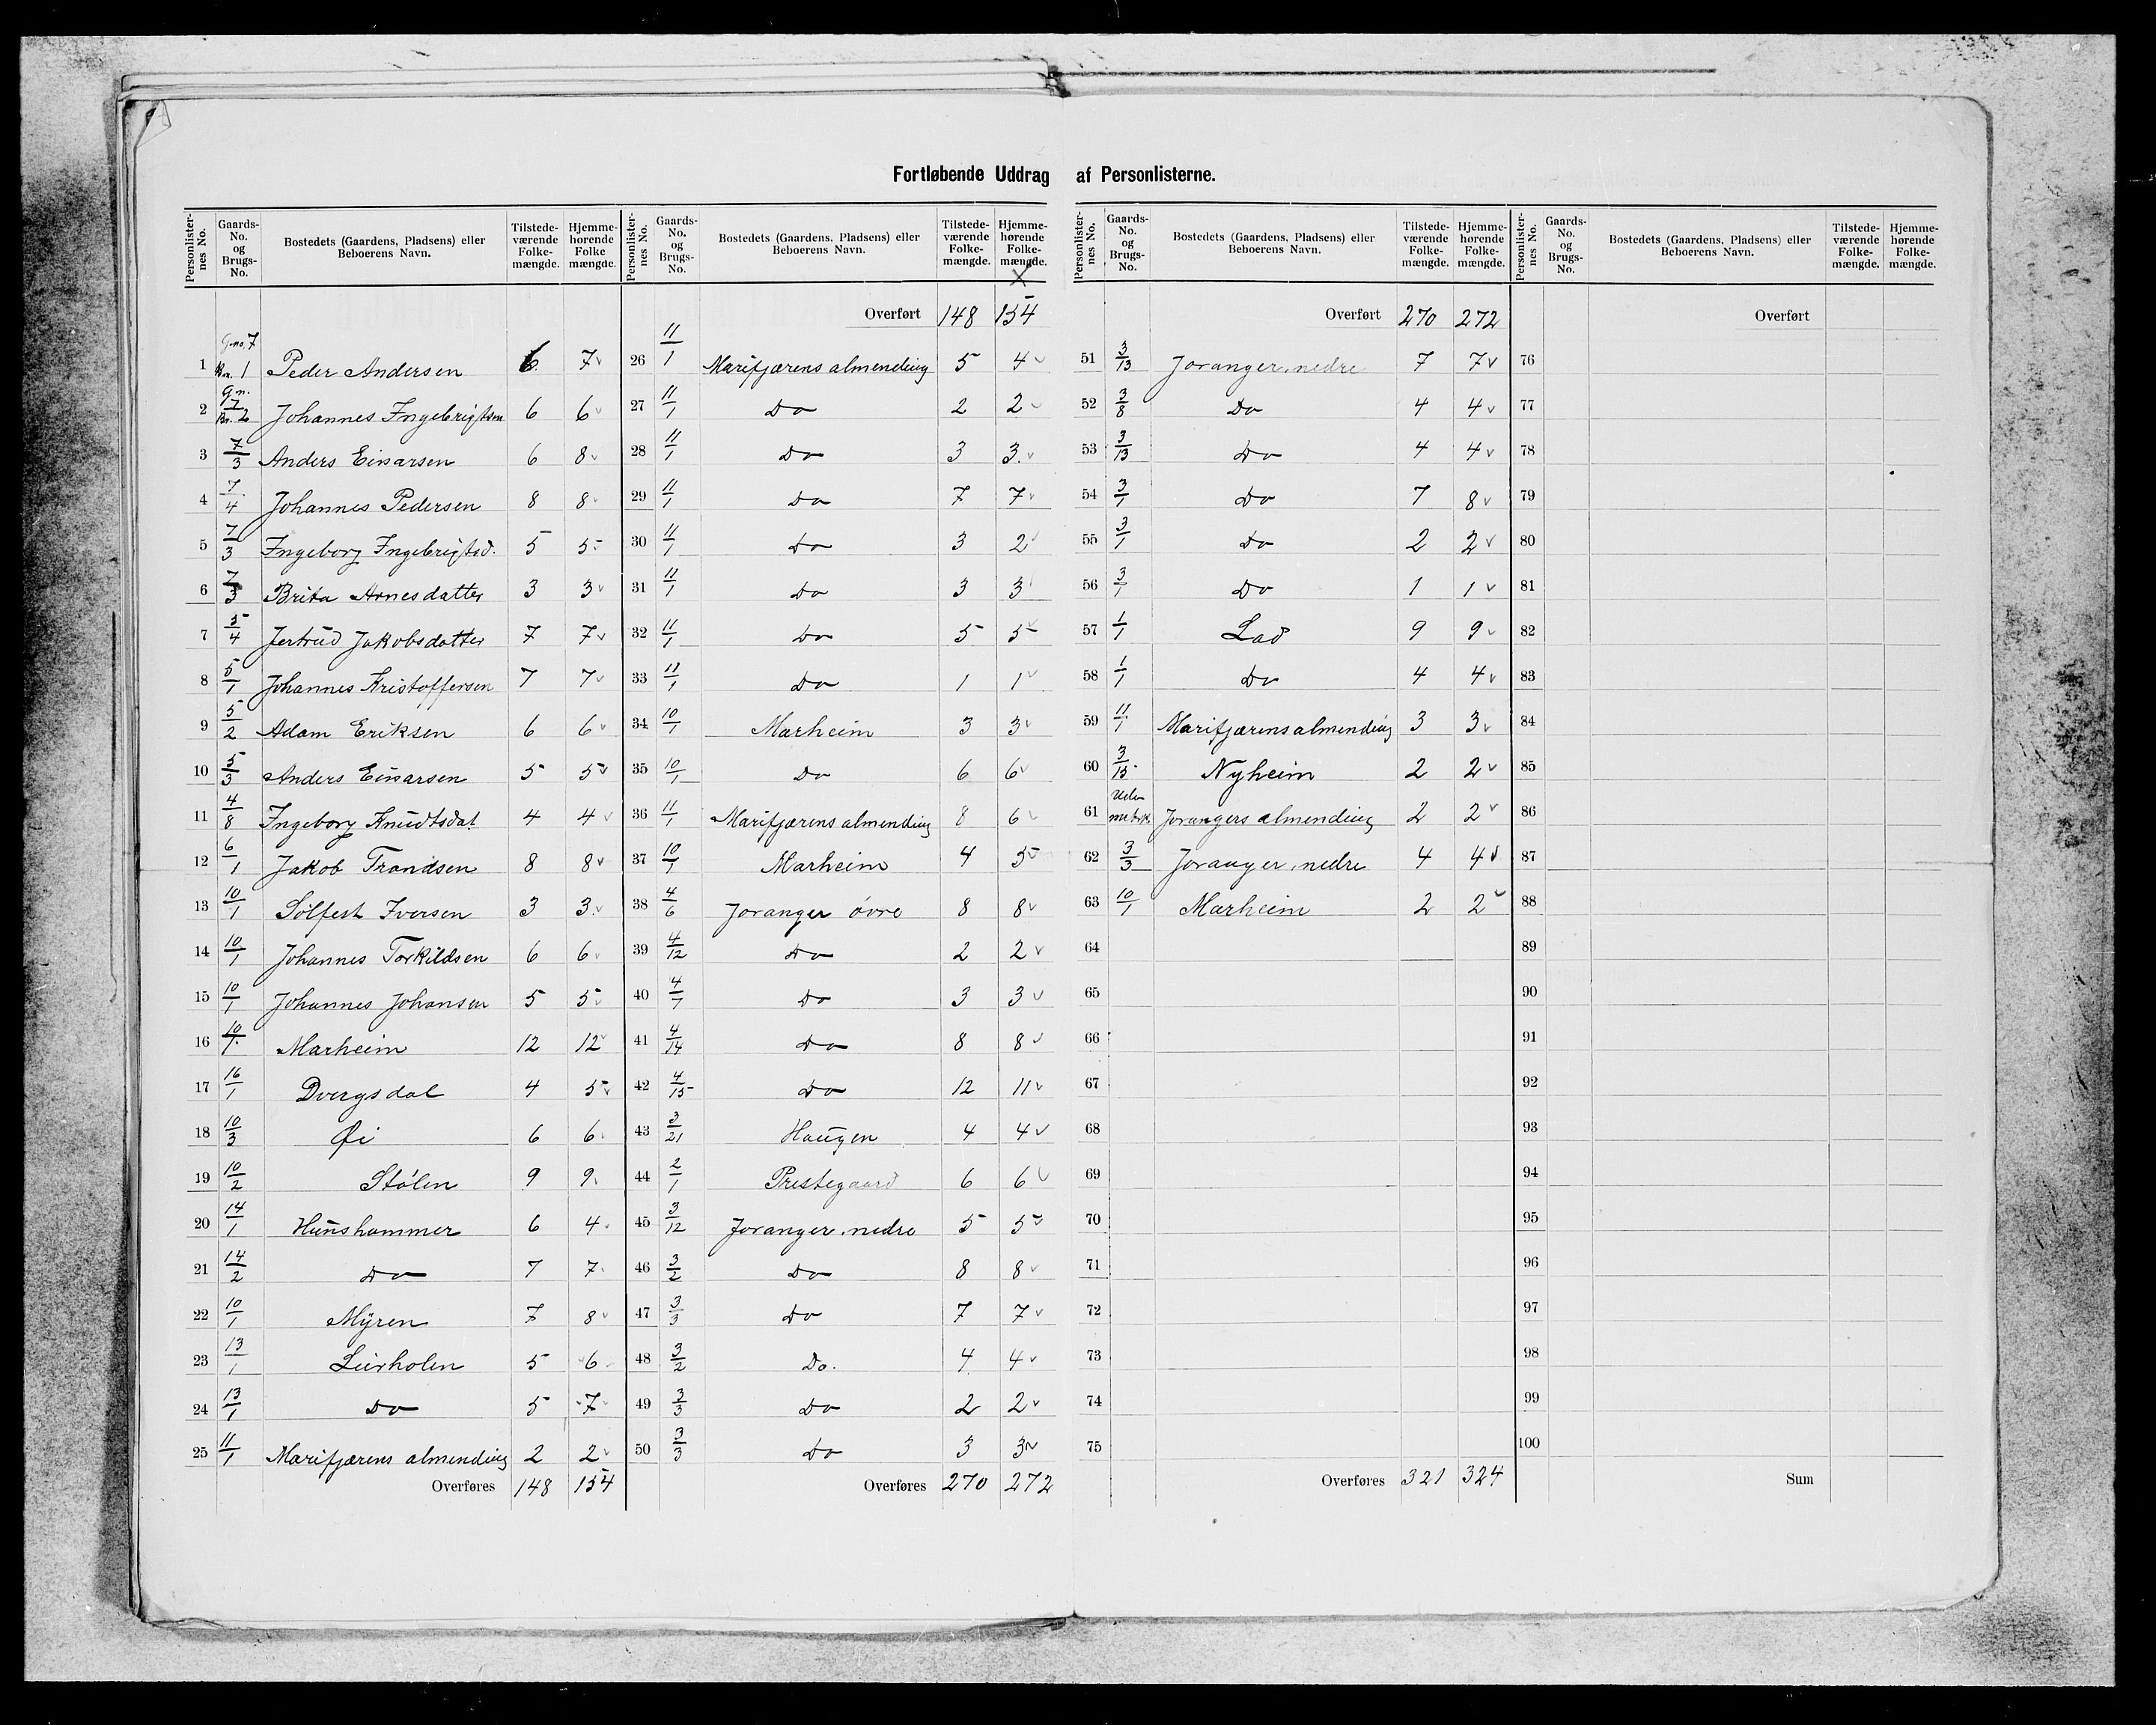 Fortløbende Uddrag af Personlisterne.
Personlister-nes No. | Gaards-No. og Brugs-No. | Bostedets (Gaardens, Pladsens) eller Beboerens Navn. | Tilstede-værende Folke-mængde. | Hjemme-hørende Folke mængde.
1 G.no. 7 Bn. 1 Peder Andersen 6 7
2 G.n. 7 Br. 2 Johannes Ingebrigtsen 6 6
3 7/3 Anders Einarsen 6 8
4 7/4 Johannes Pedersen 8 8
5 7/3 Ingeborg Ingebrigtsd. 5 5
6 7/3 Brita Arnesdatter 3 3
7 5/4 Jertrud Jakobsdatter 7 7
8 5/1 Johannes Kristoffersen 7 7
9 5/2 Adam Eriksen 6 6
10 5/3 Anders Einarsen 5 5
11 4/8 Ingeborg Knudtsdat. 4 4
12 6/1 Jakob Trondsen 8 8
13 10/1 Sølfest Iversen 3 3
14 10/1 Johannes Torkildsen 6 6
15 10/1 Johannes Johansen 5 5
16 10/1 Marheim 12 12
17 16/1 Dvergsdal 4 5
18 10/3 Øi 6 6
19 10/2 Stølen 9 9
20 14/1 Hunshammer 6 4
21 14/2 Do 7 7
22 10/1 Mÿren 7 8
23 13/1 Leirholen 5 6
24 13/1 Do 5 7
25 11/1 Marifjærens almending 2 2
Overføres 148 154
Personlister-nes No. | Gaards-No. og Brugs-No. | Bostedets (Gaardens, Pladsens) eller Beboerens Navn. | Tilstede-værende Folke-mængde. | Hjemme-hørende Folke-mængde.
X
Overført 148 154
26 11/1 Marifjærens almending 5 4
27 11/1 Do 2 2
28 11/1 Do 3 3
29 11/1 Do 7 7
30 11/1 Do 3 2
31 11/1 Do 3 3
32 11/1 Do 5 5
33 11/1 Do 1 1
34 10/1 Marheim 3 3
35 10/1 Do 6 6
36 11/1 Marifjærens almending 8 6
37 10/1 Marheim 4 5
38 4/6 Joranger øvre 8 8
39 4/12 Do 2 2
40 4/1 Do 3 3
41 4/14 Do 8 8
42 4/15 Do 12 11
43 3/21 Haugen 4 4
44 2/1 Prestegaard 6 6
45 3/12 Joranger, nedre 5 5
46 3/2 Do 8 8
47 3/3 Do 7 7
48 3/2 Do. 4 4
49 3/3 Do 2 2
50 3/3 Do 3 3
Overføres 270 272
Personlister-nes No. | Gaards-No. og Brugs-No. | Bostedets (Gaardens, Pladsens) eller Beboerens Navn. | Tilstede-værende Folke-mængde. | Hjemme-hørende Folke-mængde.
Overført 270 272
51 3/13 Joranger, nedre 7 7
52 3/8 Do 4 4
53 3/13 Do 4 4
54 3/1 Do 7 8
55 3/1 Do 2 2
56 3/1 Do 1 1
57 1/1 Lad 9 9
58 1/1 Do 4 4
59 11/1 Marifjærens almending 3 3
60 3/15 Nyheim 2 2
61 Uden matrk. Jorangers almending 2 2
62 3/3 Joranger, nedre 4 4
63 10/1 Marheim 2 2
64
65
66
67
68
69
70
71
72
73
74
75
Overføres 321 324
Personlister-nes No. | Gaards-No. og Brugs-No. | Bostedets (Gaardens, Pladsens) eller Beboerens Navn. | Tilstede-værende Folke-mængde. | Hjemme-hørende Folke-mængde.
Overført
76
77
78
79
80
81
82
83
84
85
86
87
88
89
90
91
92
93
94
95
96
97
98
99
100
Sum